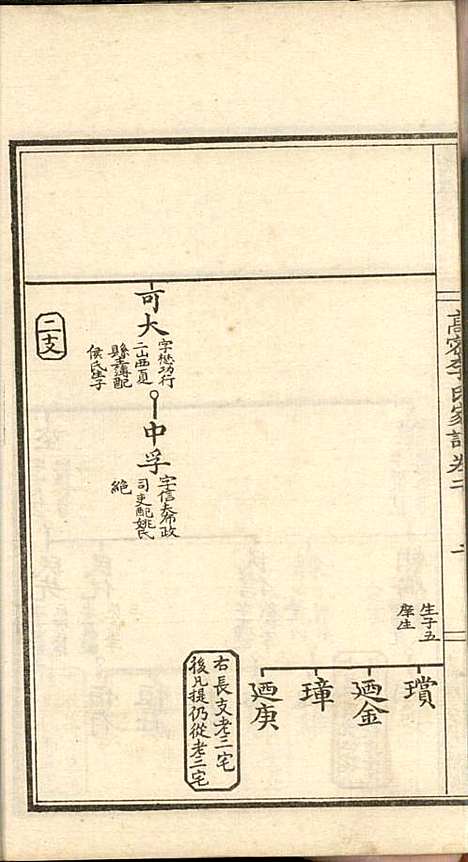 高密李氏家譜卷二
生子五
庠生
瓆
廼金
璋
廼庚
右長支老三宅
後凡提仍從老三宅
可大
字懋功行
二山西夏
縣主簿配
侯氏生子
中孚
字信夫布政
司吏配姚氏
絶
二支